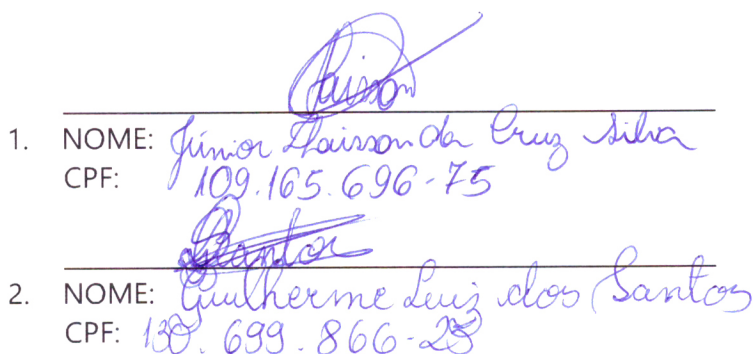 Claisson
1. NOME: Júnior Claisson da Cruz Silva
CPF: 109.165.696-75
Santos
2. NOME: Guilherme Luiz dos Santos
CPF: 130.699.866-25